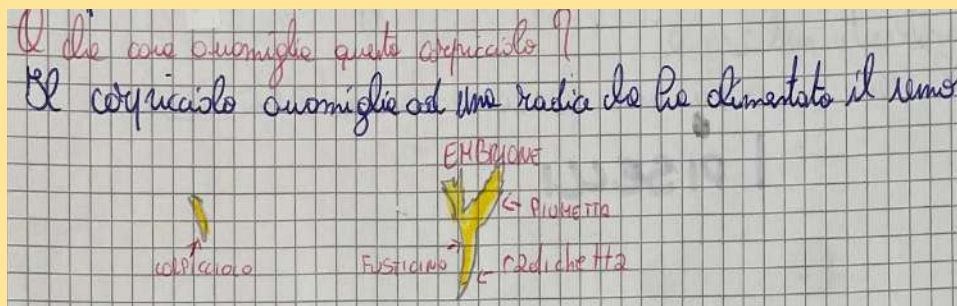 A che cosa assomiglia questo corpicciolo?
Il corpicciolo assomiglia ad una radice che ha alimentato il seme
EMBRIONE
← PIUMETTA
CORPICCIOLO
FUSTICINO →
← radichetta